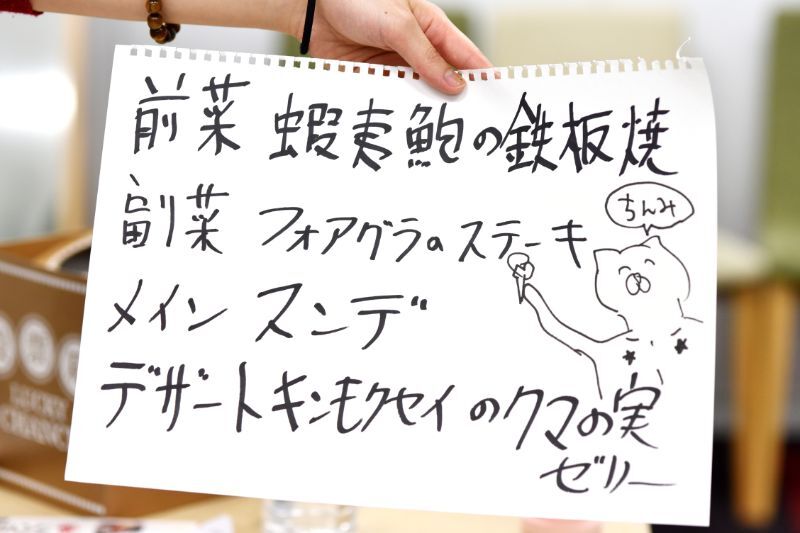 前菜 蝦夷鮑の鉄板焼
副菜 フォアグラのステーキ
ちんみ
メイン スンデ
デザート キンモクセイのクマの実
ゼリー
LUCKY
CHANCE